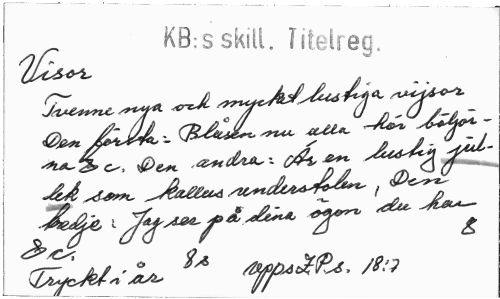 KB:s skill. Titelreg.
Visor
Tvenne nya och mycket lustiga vijsor
Den första: Blåsen nu alla hör böljor-
na &c. Den andra: Är en lustig jul-
lek som kallas understolen, Den
tredje: Jag ser på dina ögon du har
&c. 8
Tryckt i år 8s Vpps. 18:7